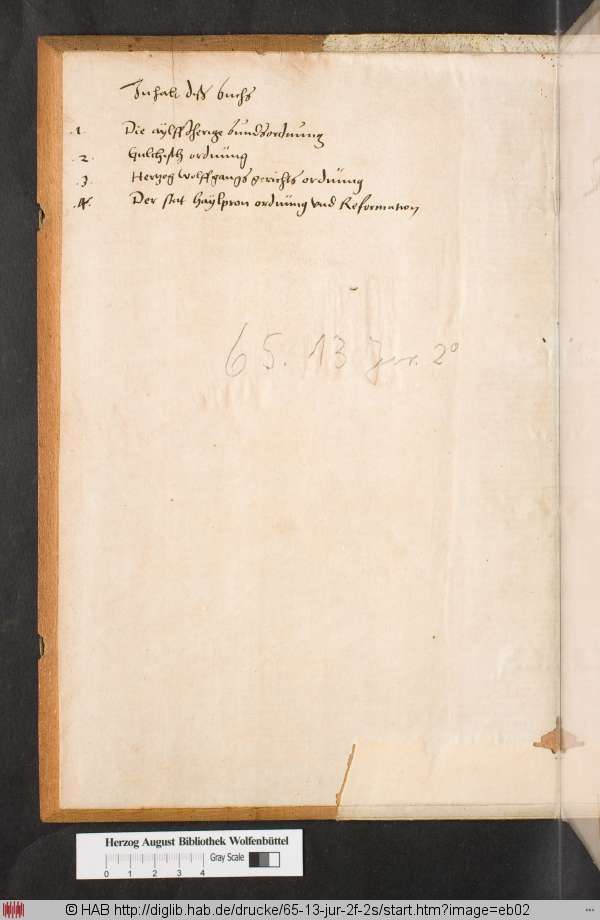 Inhalt diss buchs
.1. Die aylffJherige bundsordnung
.2. Gulchisch ordnung
.3. Hertzog Wolffgangs gerichts ordnung
.4. Der stat Haylpron ordnung vnd Reformation
65. 13 Jur. 2°
Herzog August Bibliothek Wolfenbüttel
0 1 2 3 4 Gray Scale
© HAB http://diglib.hab.de/drucke/65-13-jur-2f-2s/start.htm?image=eb02